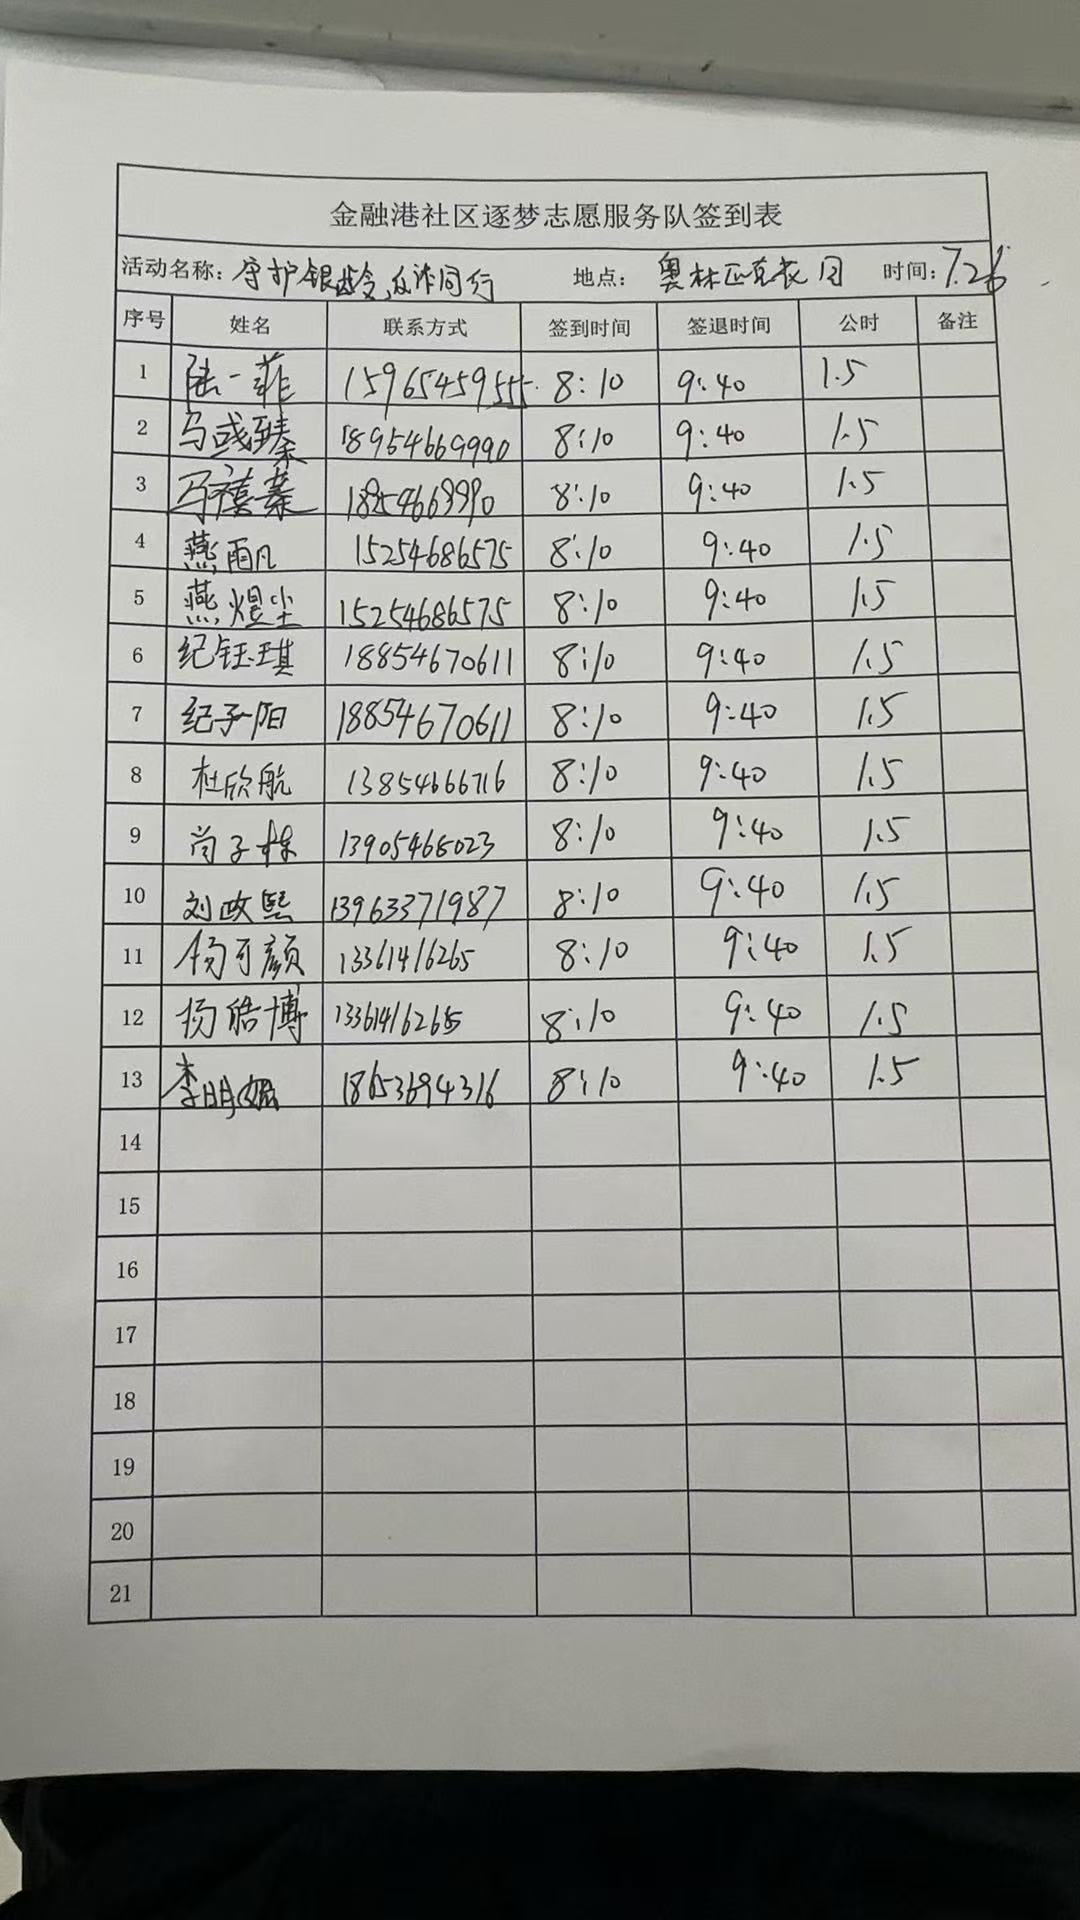 金融港社区逐梦志愿服务队签到表
活动名称：守护银龄，反诈同行 地点：奥林匹克花园 时间：7.26
序号 姓名 联系方式 签到时间 签退时间 公时 备注
1 陆一菲 15965459555 8:10 9:40 1.5
2 马彧臻 18954669990 8:10 9:40 1.5
3 马禧蓁 18954669990 8:10 9:40 1.5
4 燕雨凡 15254686575 8:10 9:40 1.5
5 燕煜尘 15254686575 8:10 9:40 1.5
6 纪钰琪 18854670611 8:10 9:40 1.5
7 纪子阳 18854670611 8:10 9:40 1.5
8 杜欣航 13854666716 8:10 9:40 1.5
9 尚子栋 13905468023 8:10 9:40 1.5
10 刘政熙 13963371987 8:10 9:40 1.5
11 杨可颜 13361416265 8:10 9:40 1.5
12 杨皓博 13361416265 8:10 9:40 1.5
13 李明 18653694316 8:10 9:40 1.5
14
15
16
17
18
19
20
21